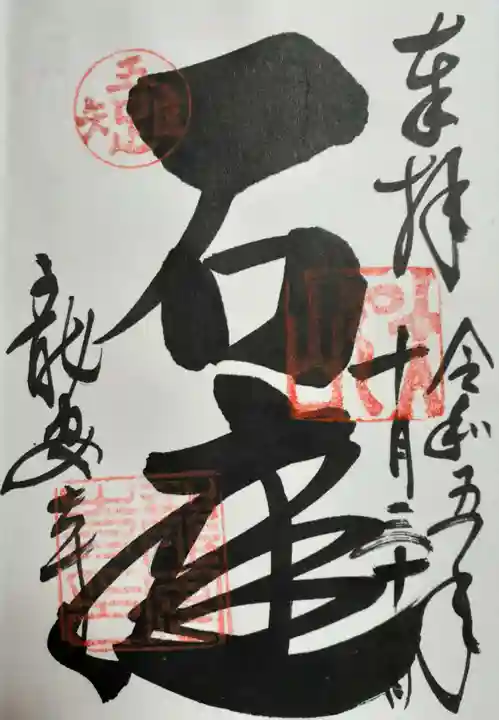 奉拝
令和五年
十月三十日
石庭
龍安寺